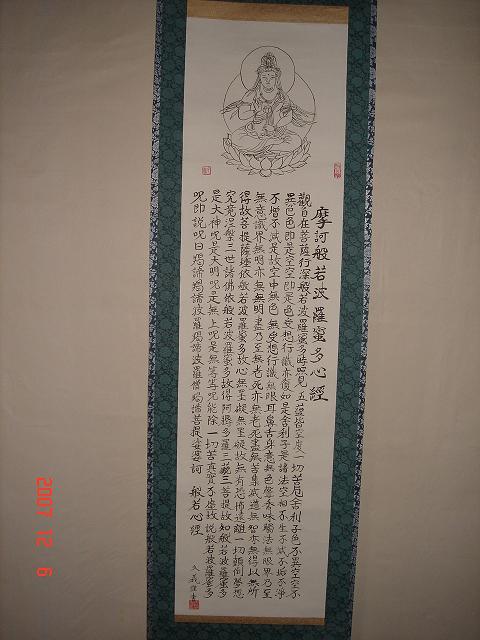 摩訶般若波羅蜜多心經
觀自在菩薩行深般若波羅蜜多時照見五蘊皆空度一切苦厄舍利子色不異空空不
異色色即是空空即是色受想行識亦復如是舍利子是諸法空相不生不滅不垢不淨
不增不減是故空中無色無受想行識無眼耳鼻舌身意無色聲香味觸法無眼界乃至
無意識界無無明亦無無明盡乃至無老死亦無老死盡無苦集滅道無智亦無得以無所
得故菩提薩埵依般若波羅蜜多故心無罣礙無罣礙故無有恐怖遠離一切顛倒夢想
究竟涅槃三世諸佛依般若波羅蜜多故得阿耨多羅三藐三菩提故知般若波羅蜜多
是大神呪是大明呪是無上呪是無等等呪能除一切苦真實不虛故說般若波羅蜜多
呪即說呪曰羯諦羯諦波羅羯諦波羅僧羯諦菩提娑婆訶 般若心經
2007 12 6